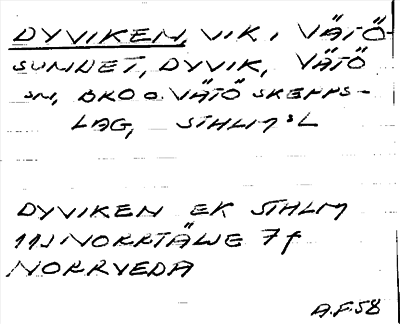 DYVIKEN, VIK I VÄTÖ-
SUNDET, DYVIK, VÄTÖ
SN, BRO O VÄTÖ SKEPPS-
LAG, STHLMS L
DYVIKEN EK STHLM
11J NORRTÄLJE 7f
NORRVEDA
A.F.58